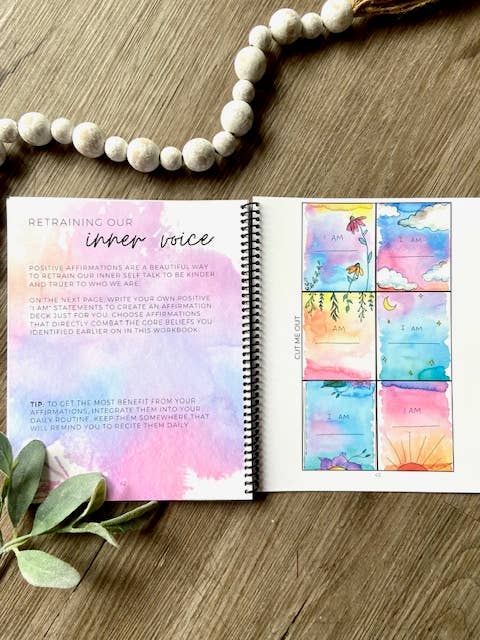 RETRAINING OUR
inner voice
POSITIVE AFFIRMATIONS ARE A BEAUTIFUL WAY
TO RETRAIN OUR INNER SELF TALK TO BE KINDER
AND TRUER TO WHO WE ARE.
ON THE NEXT PAGE, WRITE YOUR OWN POSITIVE
"I AM" STATEMENTS TO CREATE AN AFFIRMATION
DECK JUST FOR YOU. CHOOSE AFFIRMATIONS
THAT DIRECTLY COMBAT THE CORE BELIEFS YOU
IDENTIFIED EARLIER ON IN THIS WORKBOOK.
TIP: TO GET THE MOST BENEFIT FROM YOUR
AFFIRMATIONS, INTEGRATE THEM INTO YOUR
DAILY ROUTINE. KEEP THEM SOMEWHERE THAT
WILL REMIND YOU TO RECITE THEM DAILY.
CUT ME OUT
I AM
I AM
I AM
I AM
I AM
I AM